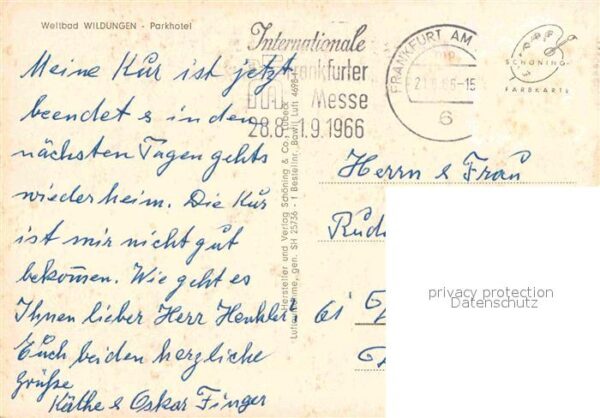 Weltbad WILDUNGEN - Parkhotel
Meine Kur ist jetzt
beendet & in den
nächsten Tagen gehts
wieder heim. Die Kur
ist mir nicht gut
bekommen. Wie geht es
Ihnen lieber Herr Henkler?
Euch beiden herzliche
Grüße
Käthe & Oskar Finger
Internationale
Frankfurter
Messe
28.8.-1.9.1966
FRANKFURT AM
6
SCHÖNING
FARBKARTE
Hersteller und Verlag Schöning & Co., Lübeck
gen. SH 25756 - 1 Bestellnr. Bewil. Luft 4698
Herrn & Frau
61
privacy protection
Datenschutz